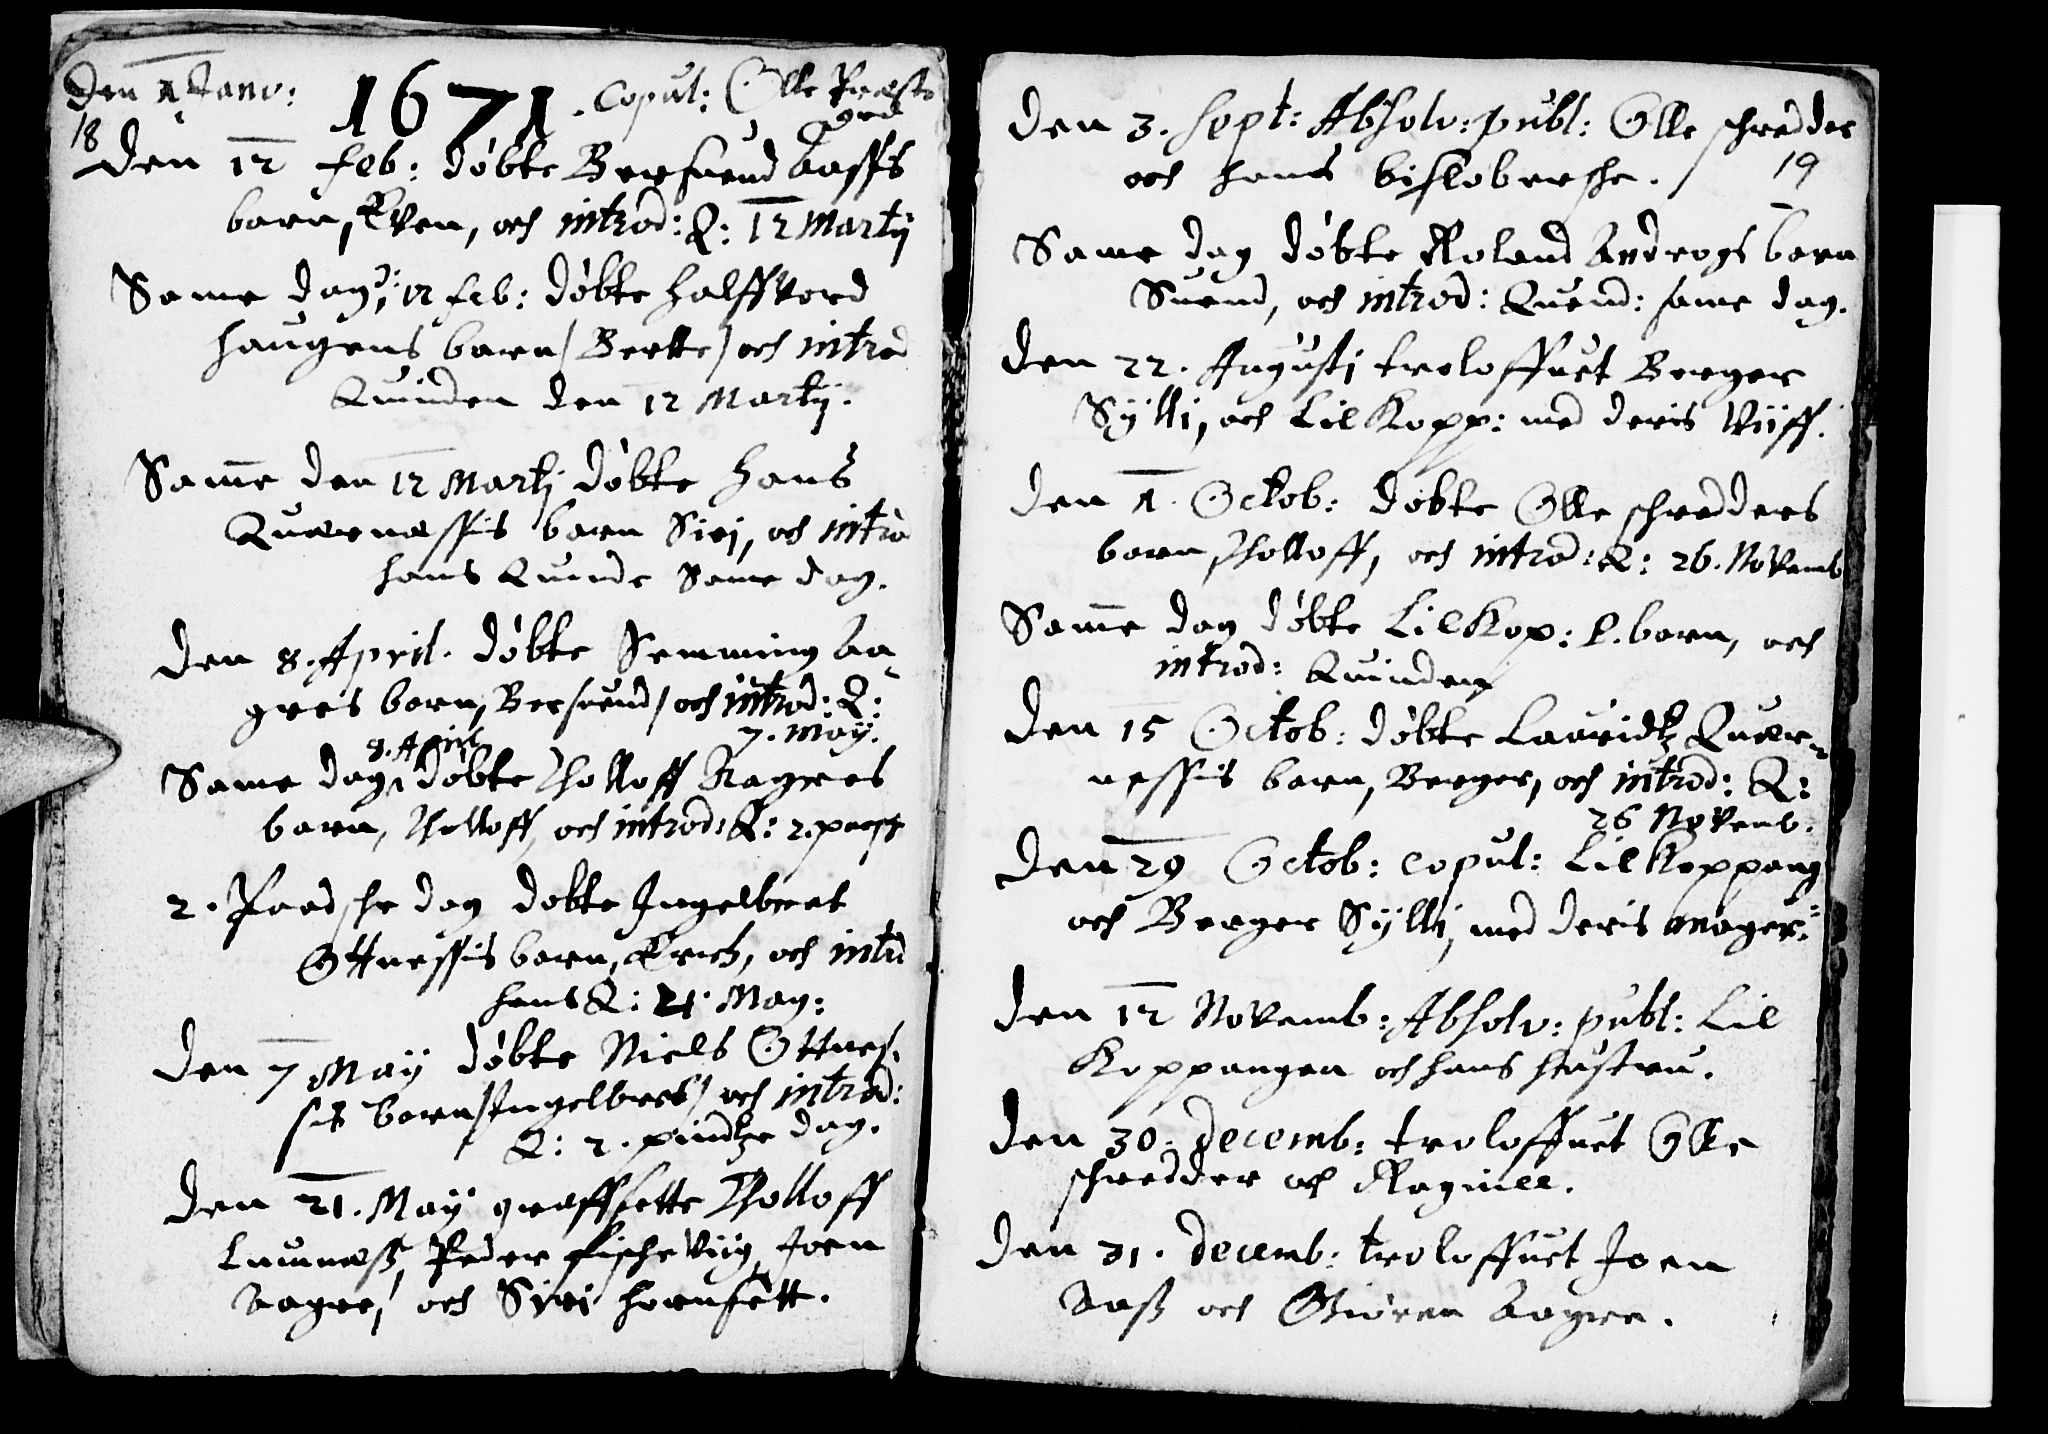 Den 1 Janv: 1671. Copul: Olle Præste
grd
18
Den 12 feb: døbte Bersuend Aassis
barn, Even, och introd: Q: 12 Martij
Same dag, 12 feb: døbte Halffvord
Haugens barn / Bertte / och introd
Quinden den 12 Martij.
Same den 12 Martj døbte Hans
Quernessis barn Siri, och introd
hans Quinde Same dag.
Den 8. April. døbte Semming Aa-
gres barn, Bersuend / och introd: Q:
7. May.
8. April
Same dag, døbte Tholloff Aagres
barn, Tholloff, och introd: Q: 2. paasch
2. Paadsche dag døbte Ingelbret
Ottnessis barn, Erich, och introd
hans Q: 21. May:
Den 7 May døbte Niels Ottnes-
sis barn / Ingelbret / och introd:
Q: 2. pindtze dag.
Den 21. May graffsette Tholloff
Lunnæss, Peder fischeviig, Joen
Aagre, och Siri Hornsett.
Den 3. Sept: Absolv: publ: Olle schredder
och hans bisloberske. 19
Same dag døbte Roland Androgs barn
Suend, och introd: Quind: same dag.
Den 22. Augustj troloffuet Berger
Sÿllj, och Lil Kopp: med deris Viiff.
Den 1. Octob: døbte Olle schredders
barn, Tholloff, och introd: Q: 26. Novemb
Same dag døbte Lil Kop: l. barn, och
introd: Quinden
Den 15 Octob: døbte Lauridtz Quer-
nessis barn, Berger, och introd: Q:
26 Novemb.
Den 29 Octob: copul: Lil Koppang
och Berger Sÿllj, med deris mager:
Den 12 Novemb: Absolv: publ: Lil
Koppangen och hans hustru.
Den 30. Decemb: troloffuet Olle
schredder och Ragnill.
Den 31. Decemb: troloffuet Joen
Aass och Giøren Aagre.